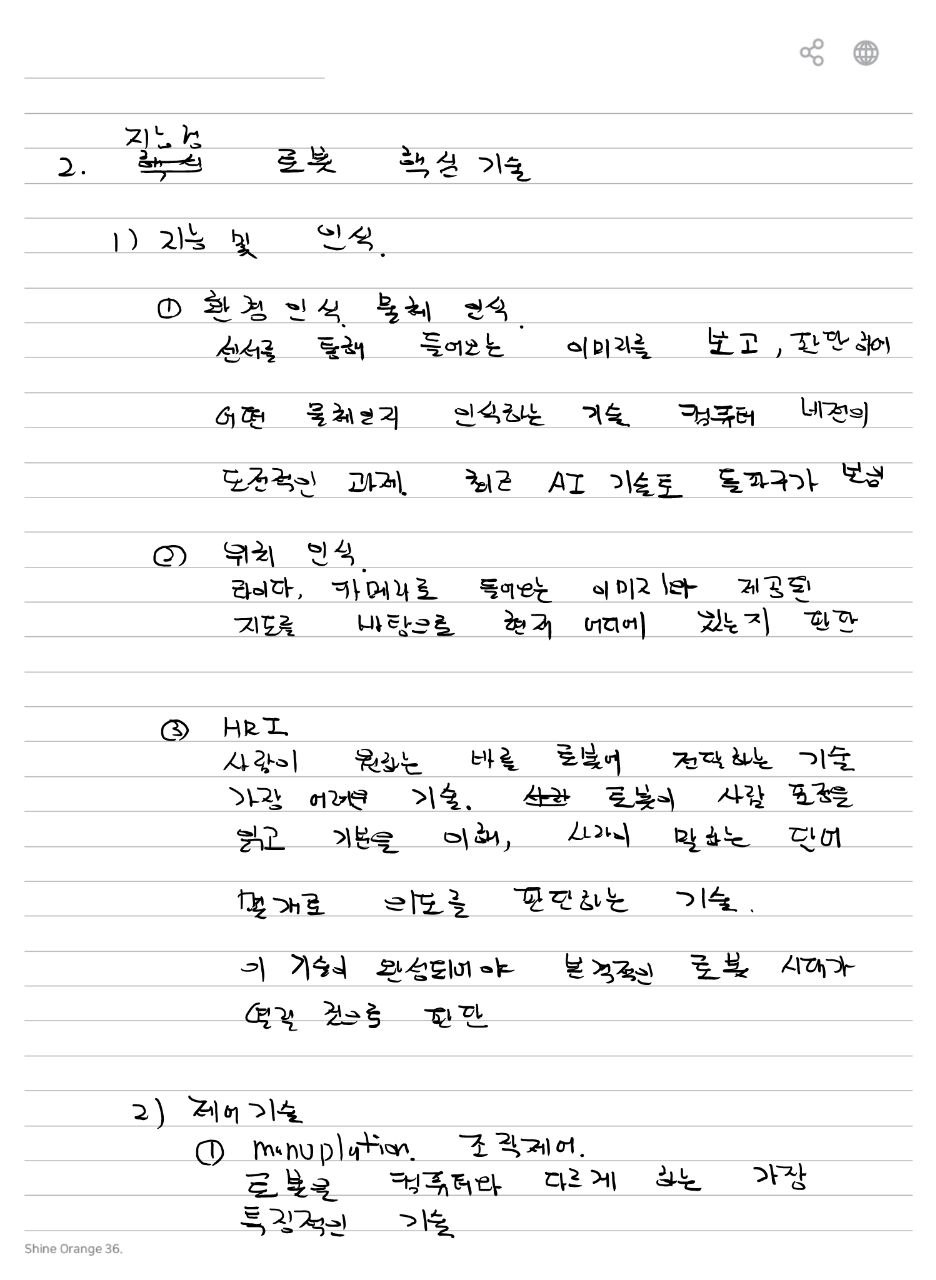 지능형
2. 핵심 로봇 핵심 기술
1) 지능 및 인식.
① 환경 인식. 물체 인식.
센서를 통해 들어오는 이미지를 보고, 판단하여
어떤 물체인지 인식하는 기술 컴퓨터 비전의
도전적인 과제. 최근 AI 기술로 돌파구가 보임
② 위치 인식.
라이다, 카메라로 들어오는 이미지와 제공된
지도를 바탕으로 현재 어디에 있는지 판단
③ HRI
사람이 원하는 바를 로봇에 전달하는 기술
가장 어려운 기술. 사람 로봇이 사람 표정을
읽고 기분을 이해, 사람이 말하는 단어
몇개로 의도를 판단하는 기술.
이 기술이 완성되어야 본격적인 로봇 시대가
열릴 것으로 판단
2) 제어기술
① manuplation. 조작제어.
로봇을 컴퓨터와 다르게 하는 가장
특징적인 기술
Shine Orange 36.